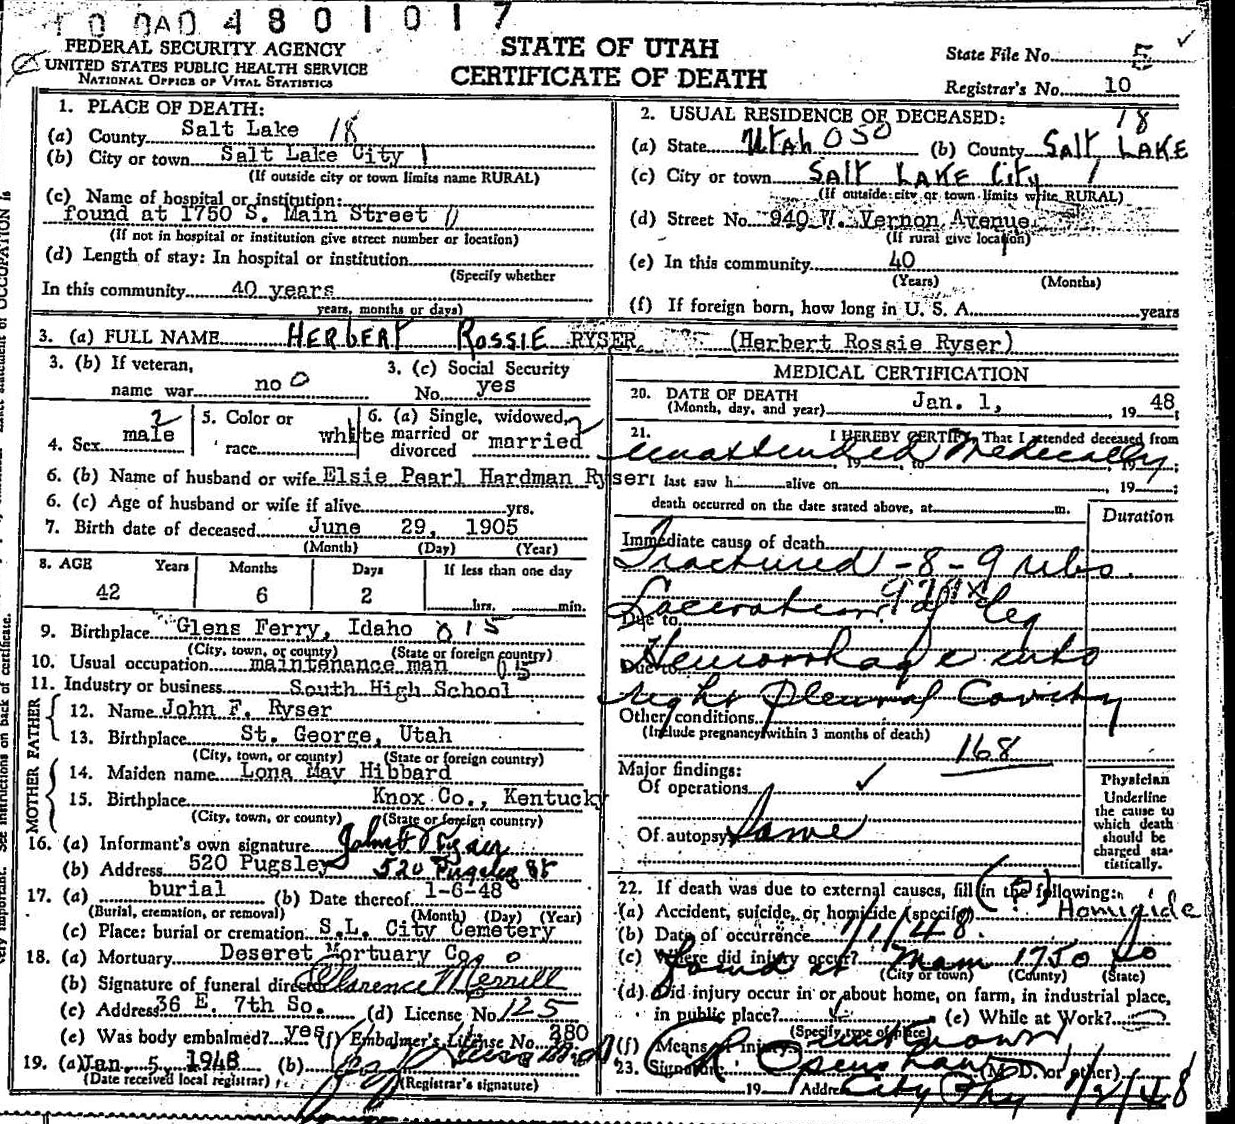 1 0 0A0 4 8 0 1 0 1 7
FEDERAL SECURITY AGENCY
UNITED STATES PUBLIC HEALTH SERVICE
NATIONAL OFFICE OF VITAL STATISTICS
STATE OF UTAH
CERTIFICATE OF DEATH
State File No. 5
Registrar's No. 10
1. PLACE OF DEATH:
(a) County Salt Lake 18
(b) City or town Salt Lake City 1
(If outside city or town limits name RURAL)
(c) Name of hospital or institution:
found at 1750 S. Main Street 11
(If not in hospital or institution give street number or location)
(d) Length of stay: In hospital or institution
(Specify whether
In this community 40 years
years, months or days)
2. USUAL RESIDENCE OF DECEASED: 18
(a) State Utah 050 (b) County SALT LAKE
(c) City or town SALT LAKE City 1
(If outside city or town limits write RURAL)
(d) Street No. 940 W. Vernon Avenue
(If rural give location)
(e) In this community 40
(Years) (Months)
(f) If foreign born, how long in U. S. A. years
3. (a) FULL NAME HERBERT ROSSIE RYSER (Herbert Rossie Ryser)
3. (b) If veteran,
name war no 0
3. (c) Social Security
No. yes
4. Sex male 2
5. Color or
race white
6. (a) Single, widowed,
married or
divorced married
6. (b) Name of husband or wife Elsie Pearl Hardman Ryser
6. (c) Age of husband or wife if alive yrs.
7. Birth date of deceased June 29, 1905
(Month) (Day) (Year)
8. AGE Years Months Days If less than one day
42 6 2 hrs. min.
9. Birthplace Glens Ferry, Idaho 015
(City, town, or county) (State or foreign country)
10. Usual occupation maintenance man 015
11. Industry or business South High School
FATHER
12. Name John F. Ryser
13. Birthplace St. George, Utah
(City, town, or county) (State or foreign country)
MOTHER
14. Maiden name Lona May Hibbard
15. Birthplace Knox Co., Kentucky
(City, town, or county) (State or foreign country)
16. (a) Informant's own signature John F Ryser
(b) Address 520 Pugsley 520 Pugsley St
17. (a) burial (b) Date thereof 1-6-48
(Burial, cremation, or removal) (Month) (Day) (Year)
(c) Place: burial or cremation S.L. City Cemetery
18. (a) Mortuary Deseret Mortuary Co. 0
(b) Signature of funeral director Clarence Merrill
(c) Address 36 E. 7th So. (d) License No. 125
(e) Was body embalmed? yes (f) Embalmer's License No. 280
19. (a) Jan. 5, 1948 (b)
(Date received local registrar) (Registrar's signature)
MEDICAL CERTIFICATION
20. DATE OF DEATH
(Month, day, and year) Jan. 1, 1948
21. I HEREBY CERTIFY, That I attended deceased from
unattended Medically
, 19 , to , 19 ;
I last saw h alive on , 19 ;
death occurred on the date stated above, at m.
Duration
Immediate cause of death
Fractured - 8 - 9 ribs
Laceration of leg
Due to
Hemorrhage into
Due to
right Pleural Cavity
Other conditions
(Include pregnancy within 3 months of death)
168
Major findings:
Of operations
Of autopsy Same
Physician
Underline
the cause to
which death
should be
charged sta-
tistically.
22. If death was due to external causes, fill in the following:
(a) Accident, suicide, or homicide (specify) (?) Homicide
(b) Date of occurrence 1/1/48.
(c) Where did injury occur? found at Main 1750 So
(City or town) (County) (State)
(d) Did injury occur in or about home, on farm, in industrial place,
in public place? (e) While at Work?
(Specify type of place)
(f) Means of injury unknown
23. Signature Openshaw (M. D. or other)
19 Address City Phy 1/2/48
See instructions on back of certificate.